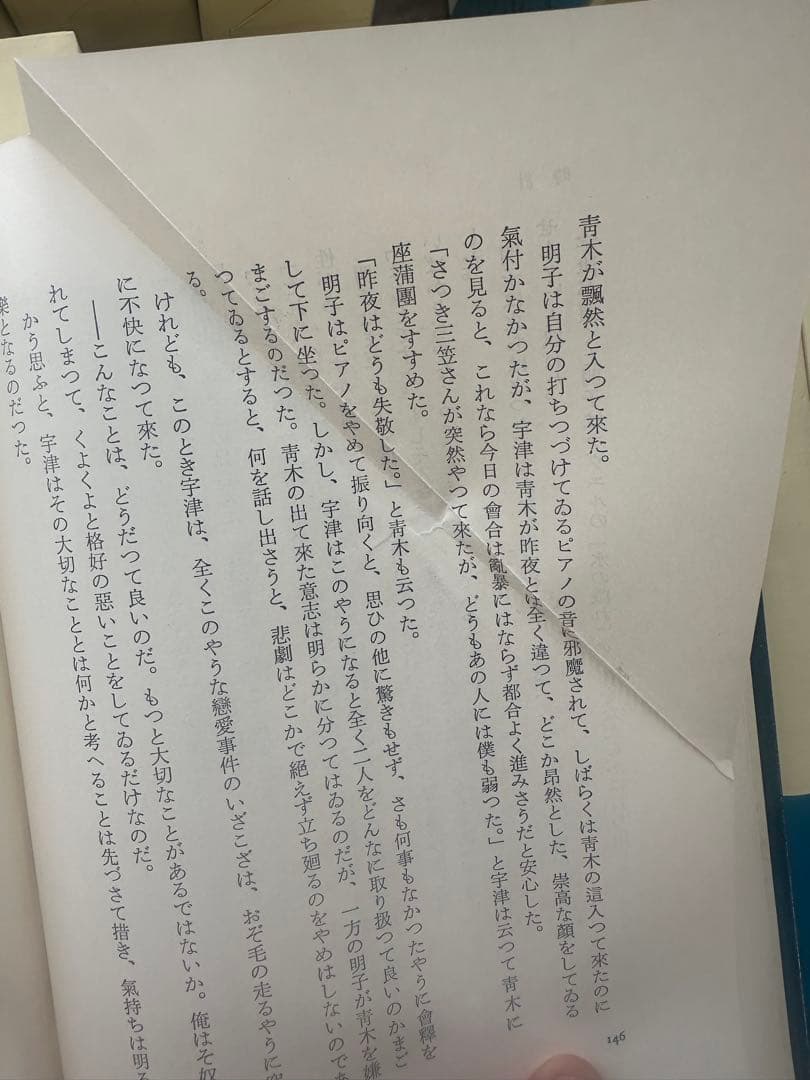 青木が飄然と入つて來た。
明子は自分の打ちつづけてゐるピアノの音に邪魔されて、しばらくは青木の這入つて來たのに
氣付かなかつたが、宇津は青木が昨夜とは全く違つて、どこか昂然とした、崇高な顏をしてゐる
のを見ると、これなら今日の會合は亂暴にはならず都合よく進みさうだと安心した。
「さつき三笠さんが突然やつて來たが、どうもあの人には僕も弱つた。」と宇津は云つて青木に
座蒲團をすすめた。
「昨夜はどうも失敬した。」と青木も云つた。
明子はピアノをやめて振り向くと、思ひの他に驚きもせず、さも何事もなかつたやうに會釋を
して下に坐つた。しかし、宇津はこのやうになると全く二人をどんなに取り扱つて良いのかまご
まごするのだつた。青木の出て來た意志は明らかに分つてはゐるのだが、一方の明子が青木を嫌
つてゐるとすると、何を話し出さうと、悲劇はどこかで絶えず立ち廻るのをやめはしないのであ
る。
けれども、このとき宇津は、全くこのやうな戀愛事件のいざこざは、おぞ毛の走るやうに
に不快になつて來た。
――こんなことは、どうだつて良いのだ。もつと大切なことがあるではないか。俺はそ奴
れてしまつて、くよくよと格好の惡いことをしてゐるだけなのだ。
かう思ふと、宇津はその大切なこととは何かと考へることは先づさて措き、氣持ちは明る
樂となるのだつた。
146